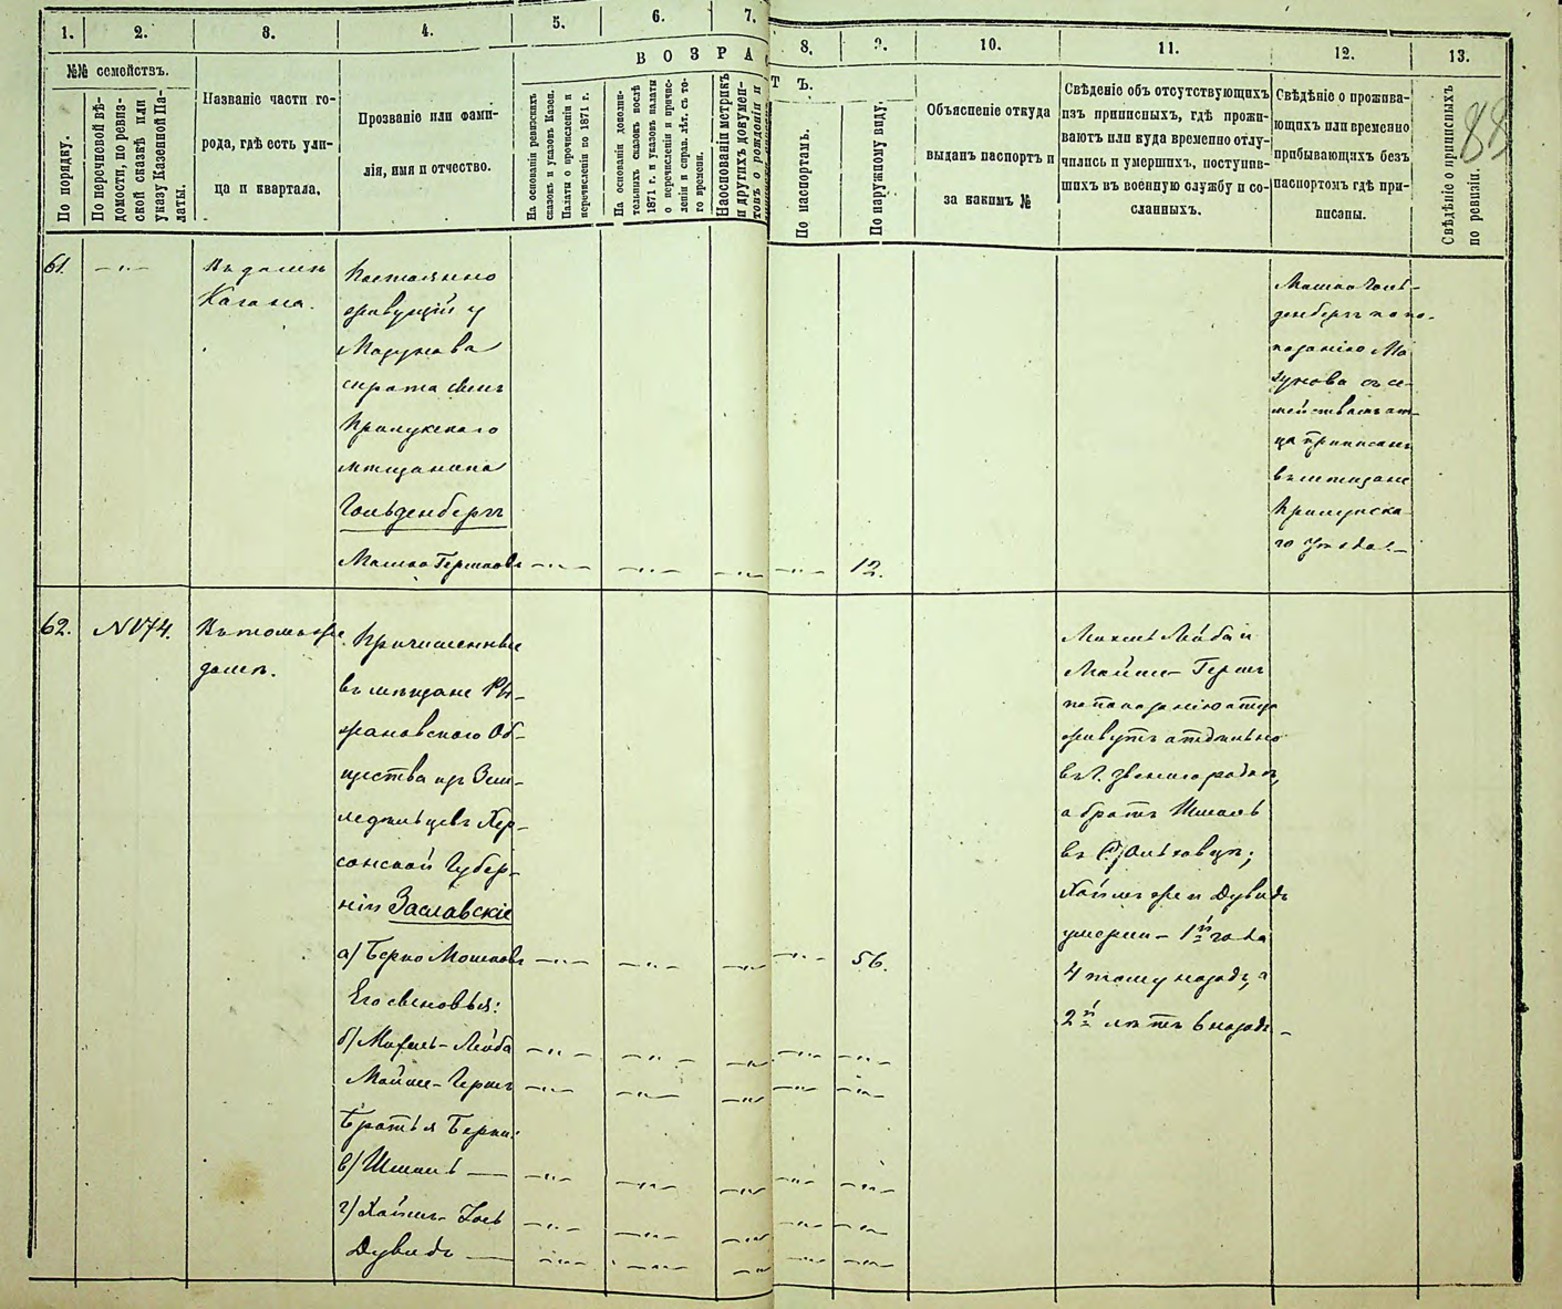 1.
2.
3.
4.
5.
6.
7.
8.
9.
10.
11.
12.
13.
№№ семействъ.
По порядку.
По перечневой вѣ-
домости, по ревиз-
ской сказкѣ или
указу Казенной Па-
латы.
Названіе части го-
рода, гдѣ есть ули-
ца и квартала.
Прозваніе или фами-
лія, имя и отчество.
ВОЗРА
ТЪ.
На основаніи ревизскихъ
сказокъ и указовъ Казен.
Палаты о причисленіи и
перечисленіи по 1871 г.
На основаніи дополни-
тельныхъ сказокъ послѣ
1871 г. и указовъ палаты
о перечисленіи и причис-
леніи и справ. лѣт. съ то-
го времени.
На основаніи метрикъ
и другихъ докумен-
товъ о рожденіи и
По паспортамъ.
По наружному виду.
Объясненіе откуда
выданъ паспортъ и
за какимъ №
Свѣденіе объ отсутствующихъ
изъ приписныхъ, гдѣ прожи-
ваютъ или куда временно отлу-
чились и умершихъ, поступив-
шихъ въ военную службу и со-
сланныхъ.
Свѣдѣніе о прожива-
ющихъ или временно
прибывающихъ безъ
паспортомъ гдѣ при-
писаны.
Свѣдѣніе о приписныхъ
по ревизіи.
88
61.
Въ домѣ
Кагана.
Постоянно
живущій у
Мазунова
сирота сынъ
Прилукскаго
мѣщанина
Гольденбергъ
Мошко Гершковъ
12.
Мошко Голь-
денбергъ по по-
казанію Ма
зунова съ се-
мействомъ от-
ца приписанъ
въ мѣщане
Прилукска-
го уѣзда.
62.
№ 174.
Въ томъ же
домѣ.
Причисленные
въ мѣщане Ры-
жановскаго Об-
щества изъ Зем-
ледѣльцевъ Хер-
сонской Губер-
ніи Заславскіе
а) Берко Мошковъ
56.
Его сыновья:
б) Михель-Лейба
Мойше-Герш
Братья Берки:
в) Шмиль
г) Хаимъ-Іось
Дувидъ
Михель Лейба и
Мойше-Герш
по показанію отца
живутъ отдѣльно
въ г. Звенигородкѣ,
а братъ Шмиль
въ Ольховцѣ;
Хаимъ же и Дувидъ
умерли – 1й года
4 тому назадъ, а
2й лѣтъ 6 назадъ